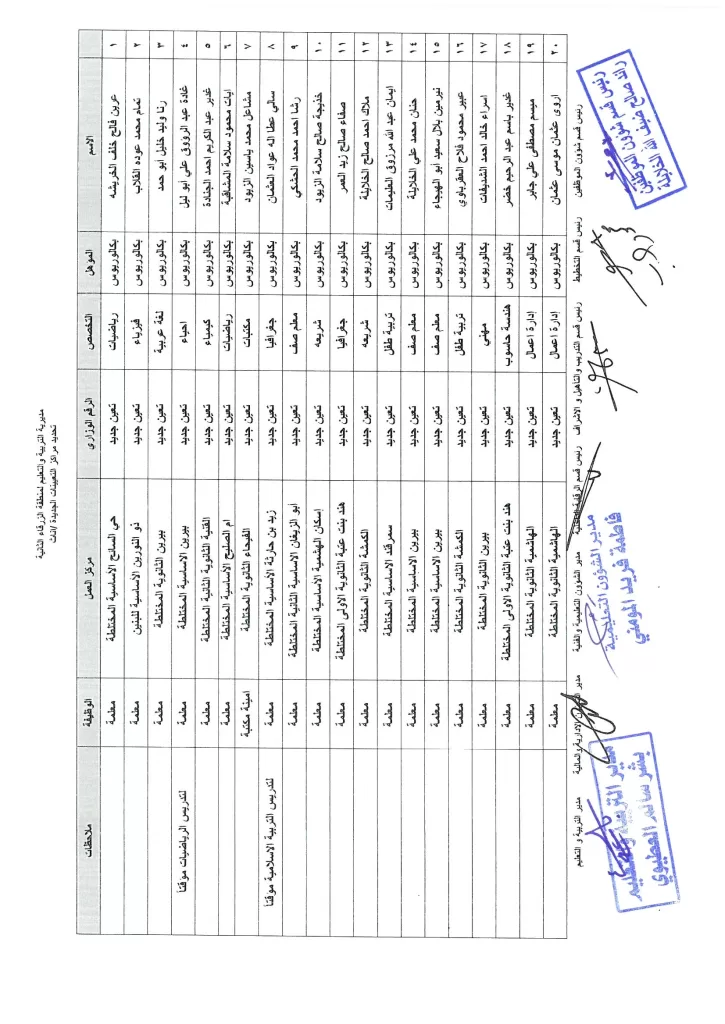 مديرية التربية والتعليم لمنطقة الزرقاء الثانية
تحديد مراكز التعيينات الجديدة /اناث
الاسم المؤهل التخصص الرقم الوزاري مركز العمل الوظيفة ملاحظات
١ عرين فالح خلف الخريشه بكالوريوس رياضيات تعين جديد حي السالح الاساسية المختلطة معلمة
٢ تمام محمد عوده القلاب بكالوريوس فيزياء تعين جديد ذو النورين الاساسية للبنين معلمة
٣ رنا وليد خليل ابو حمد بكالوريوس لغة عربية تعين جديد بيرين الثانوية المختلطة معلمة
٤ غادة عبد الرووف علي أبو ليل بكالوريوس احياء تعين جديد بيرين الاساسية المختلطة معلمة لتدريس الرياضيات موقتا
٥ غدير عبد الكريم احمد الجنادة بكالوريوس كيمياء تعين جديد القنية الثانوية الثانية المختلطة معلمة
٦ ايات محمود سلامة المشاقبة بكالوريوس رياضيات تعين جديد ام الصليح الاساسية المختلطة معلمة
٧ مشاعل محمد ياسين الزيود بكالوريوس مكتبات تعين جديد الفيحاء الثانوية المختلطة امينة مكتبة
٨ سالي عطا اله عواد العثمان بكالوريوس جغرافيا تعين جديد زيد بن حارثة الأساسية المختلطة معلمة لتدريس التربية الاسلامية موقتا
٩ رشا احمد محمد الحشكي بكالوريوس معلم صف تعين جديد أبو الزيغان الاساسية الثانية المختلطة معلمة
١٠ خديجة صالح سلامة الزيود بكالوريوس شريعه تعين جديد إسكان الهشمية الاساسية المختلطة معلمة
١١ صفاء صالح زيد العمر بكالوريوس جغرافيا تعين جديد هند بنت عتبة الثانوية الاولى المختلطة معلمة
١٢ ملاك احمد صالح الخلايلة بكالوريوس شريعه تعين جديد الكمشة الثانوية المختلطة معلمة
١٣ ايمان عبد الله مرزوق العليمات بكالوريوس تربية طفل تعين جديد سمرقند الاساسية المختلطة معلمة
١٤ حنان محمد علي الخلايلة بكالوريوس معلم صف تعين جديد بيرين الاساسية المختلطة معلمة
١٥ نيرمين بلال سعيد أبو الهيجاء بكالوريوس معلم صف تعين جديد بيرين الاساسية المختلطة معلمة
١٦ عبير محمود فلاح المغرباوي بكالوريوس تربية طفل تعين جديد الكمشة الثانوية المختلطة معلمة
١٧ اسراء خالد احمد الشديفات بكالوريوس مهني تعين جديد بيرين الثانوية المختلطة معلمة
١٨ غدير باسم عبد الرحيم خضر بكالوريوس هندسة حاسوب تعين جديد هند بنت عتبة الثانوية الاولى المختلطة معلمة
١٩ ميسم مصطفى علي جابر بكالوريوس إدارة اعمال تعين جديد الهاشمية الثانوية المختلطة معلمة
٢٠ اروى عثمان موسى عثمان بكالوريوس إدارة اعمال تعين جديد الهاشمية الثانوية المختلطة معلمة
رئيس قسم شؤون الموظفين رئيس قسم التخطيط رئيس قسم التدريب والتاهيل و الاشراف رئيس قسم الرقابة الداخلية مدير الشؤون التعليمية والفنية مدير الشؤون الادارية والمالية مدير التربية و التعليم
رئيس قسم شؤون الموظفين
رائد صالح ضيف الله الخلايلة
مدير الشؤون التعليمية
فاطمة فريد المومني
مدير التربية والتعليم
بشر سالم العطيوي